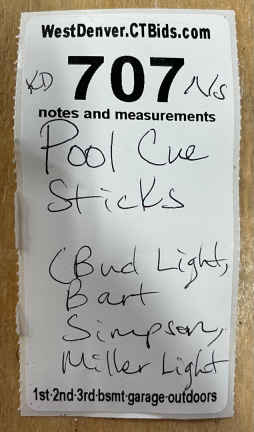 WestDenver.CTBids.com
KD 707 N/S
notes and measurements
Pool Cue
Sticks
(Bud Light,
Bart
Simpson,
Miller Light
1st·2nd·3rd·bsmt·garage·outdoors